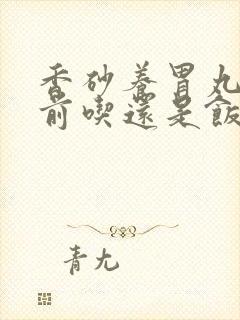 香砂養胃丸
前喫還是飯
青九